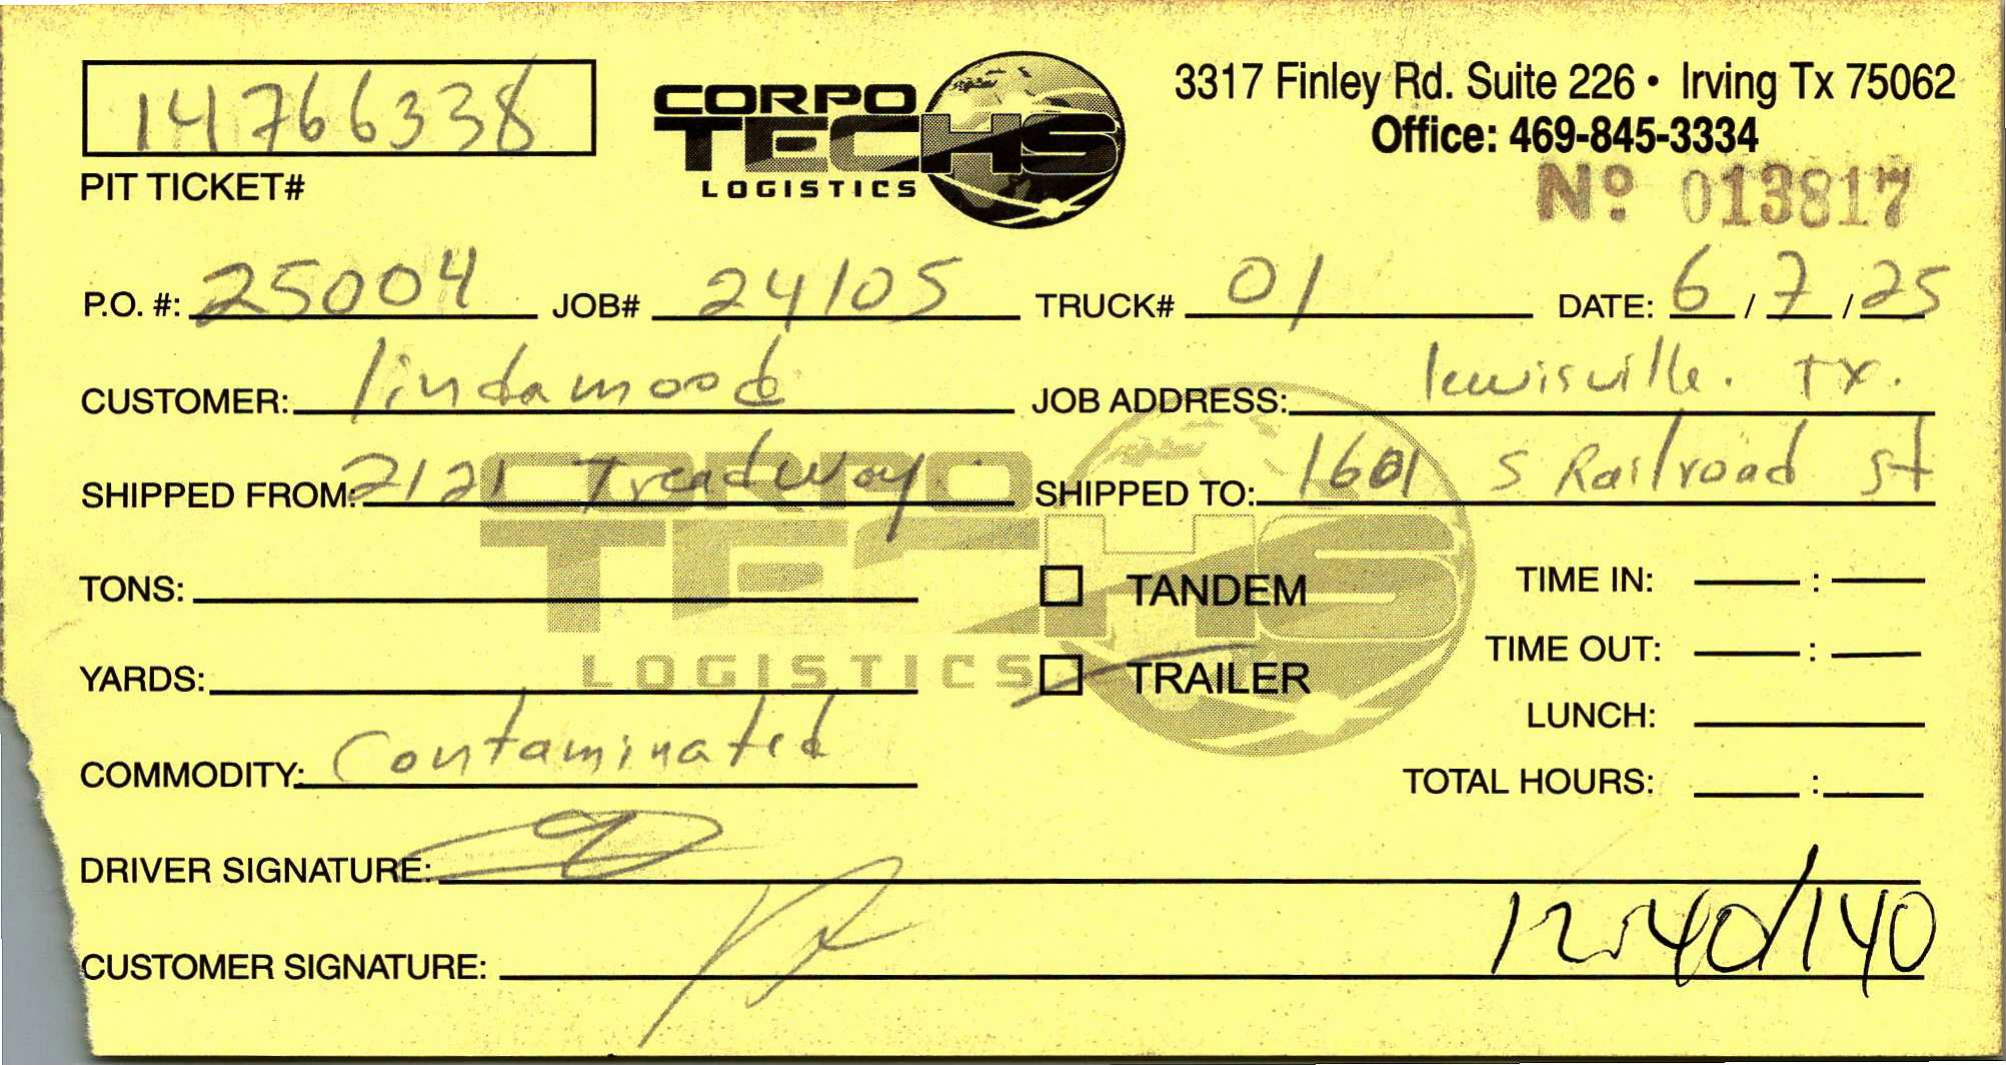 14766338
PIT TICKET#
CORPO
TECHS
LOGISTICS
3317 Finley Rd. Suite 226 • Irving Tx 75062
Office: 469-845-3334
Nº 013817
P.O. #: 25004 JOB# 24105 TRUCK# 01 DATE: 6 / 7 / 25
CUSTOMER: lindamood JOB ADDRESS: lewisville. TX.
SHIPPED FROM: 2121 Treadway. SHIPPED TO: 1601 S Railroad st
CORPO
TECHS
LOGISTICS
TONS: TANDEM TIME IN: :
YARDS: TRAILER TIME OUT: :
LUNCH:
COMMODITY: Contaminated TOTAL HOURS: :
DRIVER SIGNATURE:
CUSTOMER SIGNATURE: 12:40/140